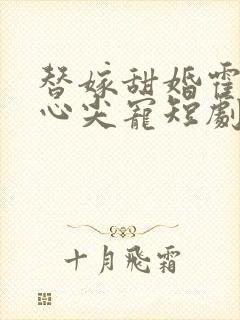 替嫁甜婚霍
心尖寵短劇
十月飛霜